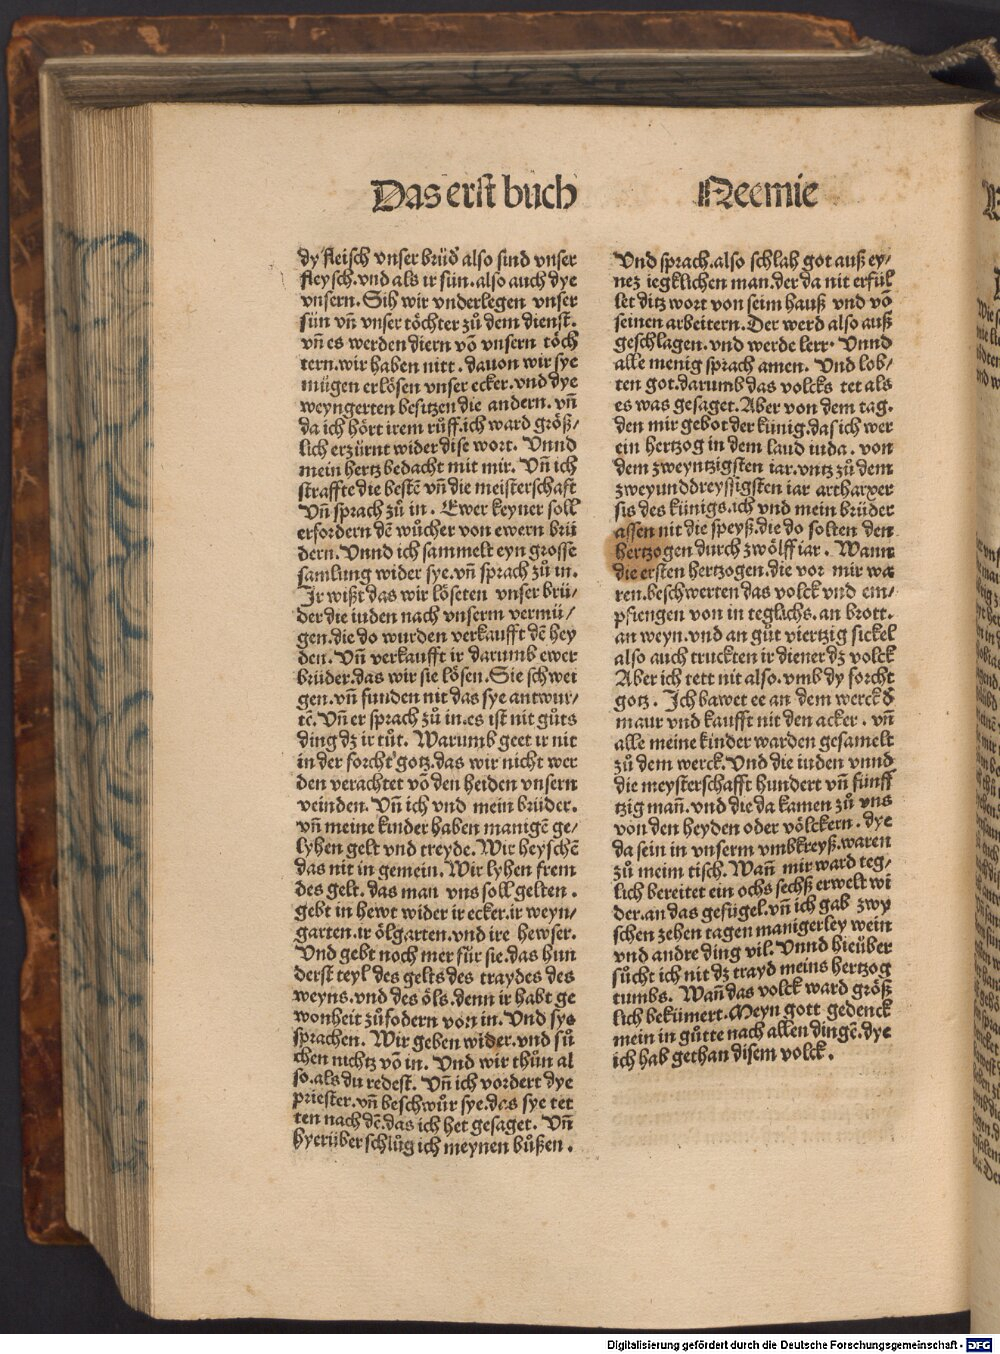 Das erst buch Neemie
dy fleisch vnser brüd̕ also sind vnser
fleysch.vnd als ir sün.also auch dye
vnsern. Sih wir vnderlegen vnser
sün vn̄ vnser töchter zů dem dienst.
vn̄ es werden diern vō vnsern töch
tern.wir haben nitt. dauon wir sye
mügen erlösen vnser ecker.vnd dye
weyngerten besitzen die andern. vn̄
da ich hört irem rüff.ich ward größ/
lich erzürnt wider dise wort. Vnnd
mein hertz bedacht mit mir. Vn̄ ich
straffte die bestē vn̄ die meisterschaft
Vn̄ sprach zů in. Ewer keyner soll
erfordern dē wůcher von ewern brü
dern. Vnnd ich sammelt eyn grosse
samlung wider sye.vn̄ sprach zů in.
Ir wißt das wir löseten vnser brü/
der die iuden nach vnserm vermü/
gen.die do wurden verkaufft dē hey
den. Vn̄ verkaufft ir darumb ewer
brüder.das wir sie lösen. Sie schwei
gen.vn̄ funden nit das sye antwur/
tē. Vn̄ er sprach zů in.es ist nit gůts
ding dz ir tůt. Warumb geet ir nit
in der forcht gotz.das wir nicht wer
den verachtet vō den heiden vnsern
veinden. Vn̄ ich vnd mein brüder.
vn̄ meine kinder haben manigē ge/
lyhen gelt vnd treyde. Wir heyschē
das nit in gemein. Wir lyhen frem
des gelt. das man vns soll gelten.
gebt in hewt wider ir ecker.ir weyn/
garten.ir ölgarten.vnd ire hewser.
Vnd gebt noch mer für sie.das hun
derst teyl des gelts des traydes des
weyns.vnd des öls.denn ir habt ge
wonheit zůfodern von in. Vnd sye
sprachen. Wir geben wider.vnd sů
chen nichtz vō in. Vnd wir thůn al
so.als du redest. Vn̄ ich vordert dye
priester.vn̄ beschwůr sye.das sye tet
ten nach dē.das ich het gesaget. Vn̄
hyerüber schlůg ich meynen bůßen.
Vnd sprach.also schlah got auß ey/
nez ieglichen man.der da nit erfül
let ditz wort von seim hauß vnd vō
seinen arbeitern. Der werd also auß
geschlagen.vnd werde lerr. Vnnd
alle menig sprach amen. Vnd lob/
ten got.darumb das volcks tet als
es was gesaget. Aber von dem tag.
den mir gebot der künig.das ich wer
ein hertzog in dem land iuda. von
dem zweyntzigsten iar.vntz zů dem
zweyunddreyssigsten iar artharxer
sis des künigs.ich vnd mein brüder
assen nit die speyß.die do solten den
hertzogen durch zwölff iar. Wann
die ersten hertzogen.die vor mir wa
ren.beschwerten das volck vnd em/
pfiengen von in teglichs.an brott.
an weyn.vnd an gůt viertzig sickel
also auch truckten ir diener dz volck
Aber ich tett nit also.vmb dy forcht
gotz. Ich bawet ee an dem werck d̕
maur vnd kaufft nit den acker. vn̄
alle meine kinder warden gesamelt
zů dem werck. Vnd die iuden vnnd
die meysterschafft hundert vn̄ fünff
tzig man̄.vnd die da kamen zů vns
von den heyden oder völckern. dye
da sein in vnserm vmbkreyß.waren
zů meim tisch. Wan̄ mir ward teg/
lich bereitet ein ochs sechß erwelt wi
der.an das gefügel.vn̄ ich gab zwy
schen zehen tagen manigerley wein
vnd andre ding vil. Vnnd hieüber
sůcht ich nit dz trayd meins hertzog
tumbs. Wan̄ das volck ward größ
lich bekümert. Meyn gott gedenck
mein in gůtte nach allen dingē.dye
ich hab gethan disem volck.
Digitalisierung gefördert durch die Deutsche Forschungsgemeinschaft - DFG